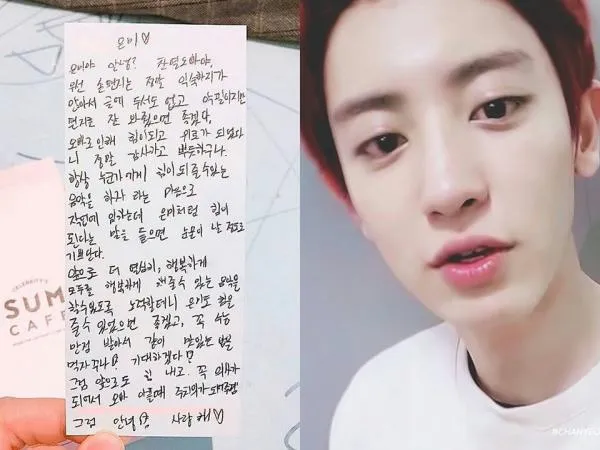 은비♡
은비야 안녕? 찬열오빠야,
우선 손편지는 정말 익숙하지가
않아서 글에 두서도 없고 악필이지만
편지는 잘 봐줬으면 좋겠다,
오빠로 인해 힘이되고 위로가 되었다
니 정말 감사하고 뿌듯하구나.
항상 누군가에게 힘이 되줄수있는
음악을 하자 라는 마음으로
작업에 임하는데 은비처럼 힘이
된다는 말을 들으면 눈물이 날 정도로
기쁘단다.
앞으로 더 열심히, 행복하게
모두를 행복하게 해줄수 있는 음악을
할수있도록 노력할테니 은비도 힘을
줄수 있었으면 좋겠고, 꼭 수능
만점 받아서 같이 맛있는 밥을
먹자꾸나! 기대하겠다!
그럼 앞으로도 힘 내고. 꼭 의사가
되어서 오빠 아플때 주치의가 되어주렴
그럼 안녕!! 사랑해♡
CELEBRITY'S
SUM
CAFE